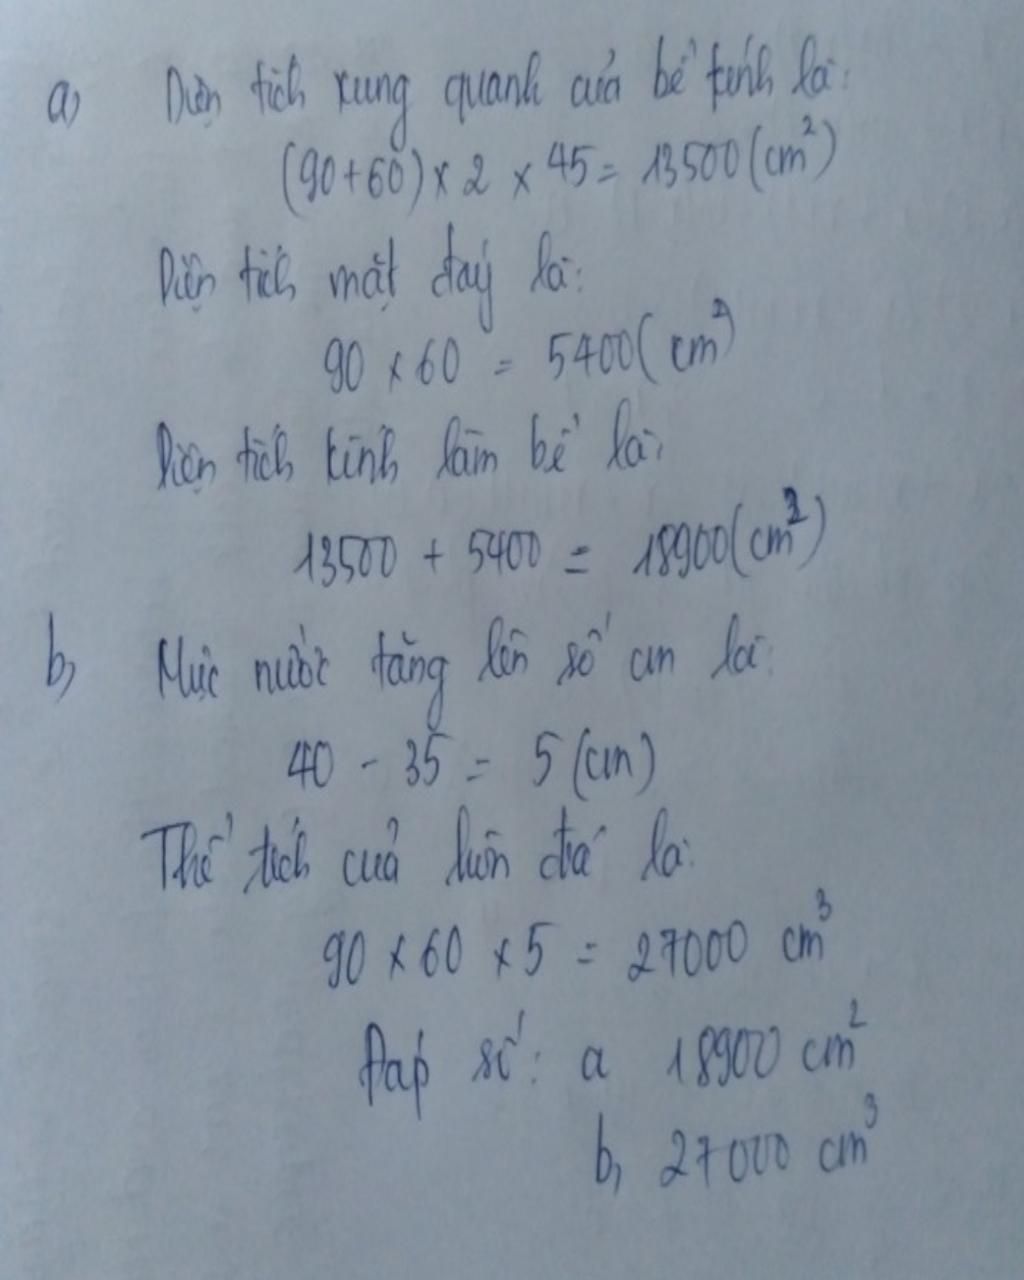 a, Diện tích xung quanh của bể kính là:
(90+60) x 2 x 45 = 13500 (cm²)
Diện tích mặt đáy là:
90 x 60 = 5400 (cm²)
Diện tích kính làm bể là:
13500 + 5400 = 18900 (cm²)
b, Mực nước tăng lên số cm là:
40 - 35 = 5 (cm)
Thể tích của hòn đá là:
90 x 60 x 5 = 27000 cm³
Đáp số: a 18900 cm²
b, 27000 cm³